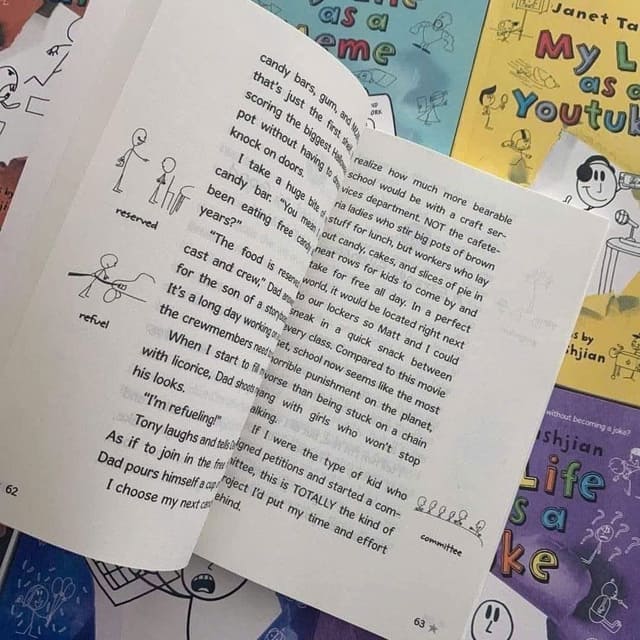 as a
Meme
Janet Ta
My L
as a
Youtub
candy bars, gum, and
that's just the first
scoring the biggest
pot without having to
knock on doors.
I take a huge bite
candy bar. "You mean
been eating free candy
years?"
"The food is
cast and crew," Dad
for the son of a
It's a long day working
the crewmembers need
When I start to fill
with licorice, Dad
his looks.
"I'm refueling!"
Tony laughs and tells
As if to join in the free
Dad pours himself a cup
I choose my next
reserved
refuel
62
realize how much more bearable
school would be with a craft ser-
vices department. NOT the cafete-
ria ladies who stir big pots of brown
stuff for lunch, but workers who lay
out candy, cakes, and slices of pie in
neat rows for kids to come by and
take for free all day. In a perfect
world, it would be located right next
to our lockers so Matt and I could
sneak in a quick snack between
every class. Compared to this movie
school now seems like the most
horrible punishment on the planet,
worse than being stuck on a chain
gang with girls who won't stop
talking.
If I were the type of kid who
signed petitions and started a com-
mittee, this is TOTALLY the kind of
project I'd put my time and effort
behind.
committee
63
s by
shjian
without becoming a joke?
shjian
Life
s a
ke